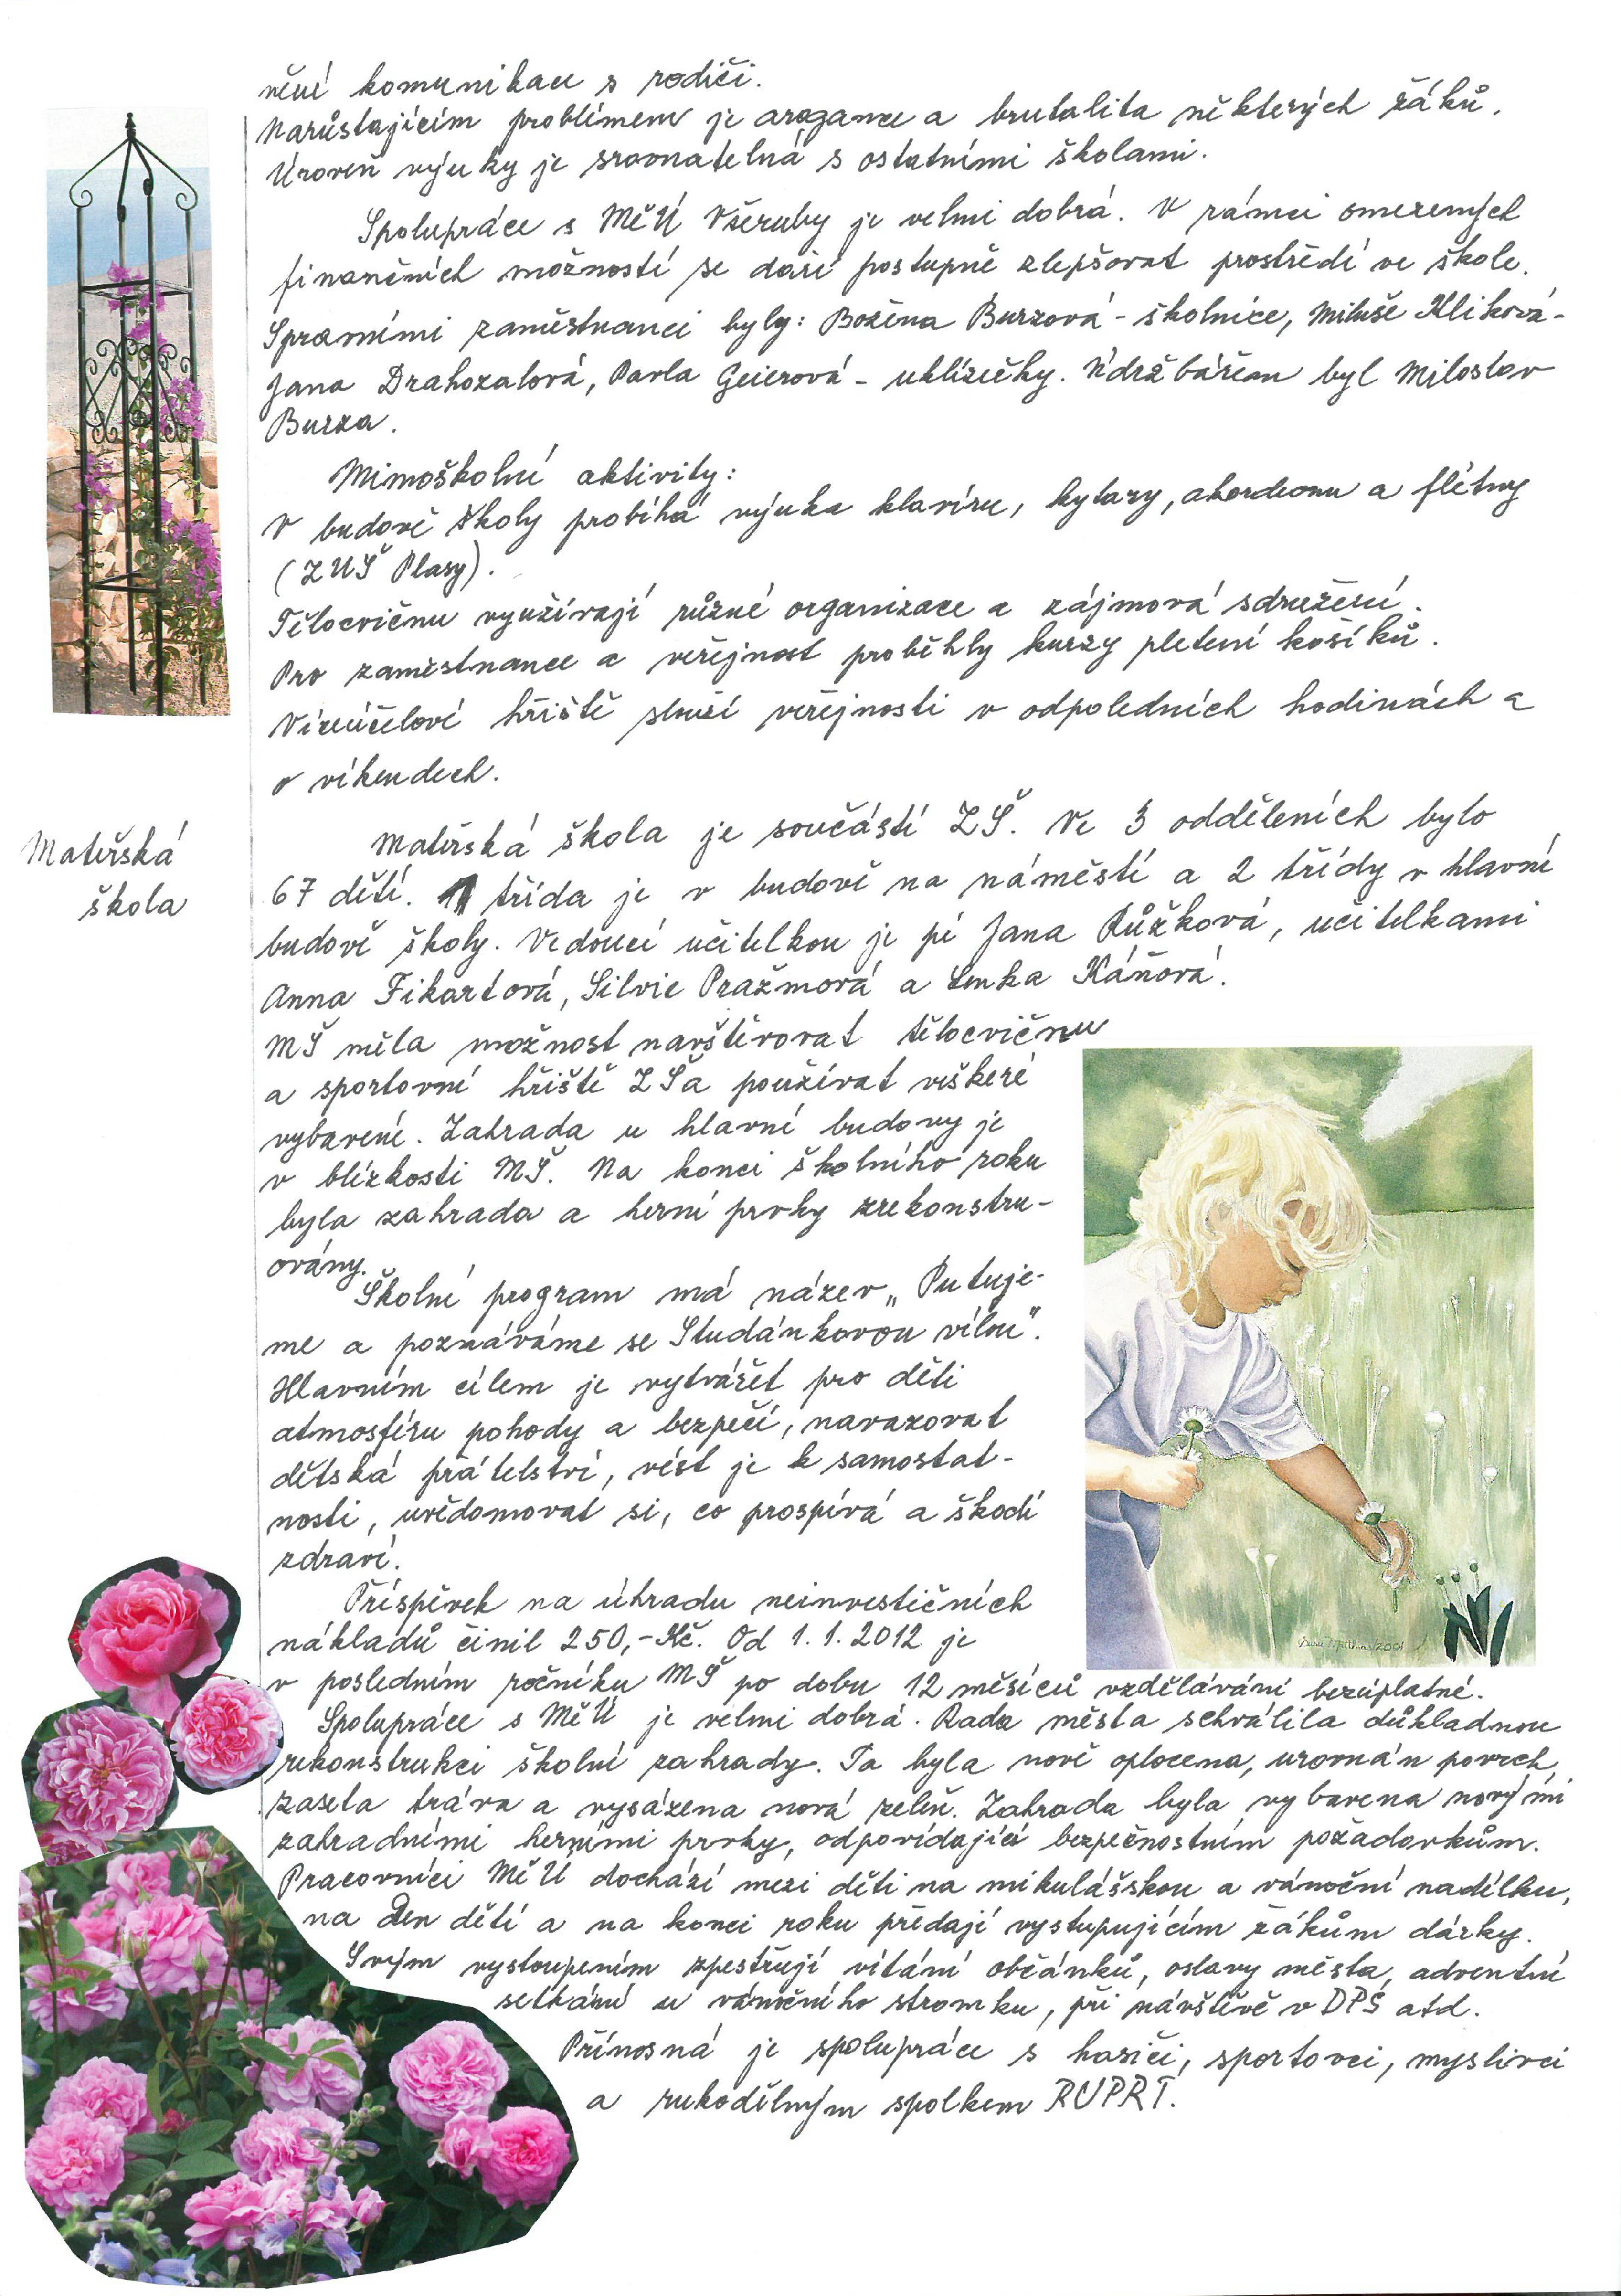 nění komunikace s rodiči.
Narůstajícím problémem je arogance a brutalita některých žáků.
Úroveň výuky je srovnatelná s ostatními školami.
Spolupráce s MěÚ Všeruby je velmi dobrá. V rámci omezených
finančních možností se daří postupně zlepšovat prostředí ve škole.
Správními zaměstnanci byly: Božena Burzová - školnice, Miluše Kliková -
Jana Drahozalová, Pavla Geierová - uklízečky. Údržbářem byl Miloslav
Burza.
Mimoškolní aktivity:
V budově školy probíhá výuka klavíru, kytary, akordeonu a flétny
(ZUŠ Plasy).
Tělocvičnu využívají různé organizace a zájmová sdružení.
Pro zaměstnance a veřejnost proběhly kurzy pletení košíků.
Víceúčelové hřiště slouží veřejnosti v odpoledních hodinách a
o víkendech.
Mateřská
škola
Mateřská škola je součástí ZŠ. Ve 3 odděleních bylo
67 dětí. 1 třída je v budově na náměstí a 2 třídy v hlavní
budově školy. Vedoucí učitelkou je pí Jana Růžková, učitelkami
Anna Fikartová, Silvie Pražmová a Lenka Káňová.
MŠ měla možnost navštěvovat tělocvičnu
a sportovní hřiště ZŠ a používat veškeré
vybavení. Zahrada u hlavní budovy je
v blízkosti MŠ. Na konci školního roku
byla zahrada a herní prvky zrekonstru-
ovány.
Školní program má název „Putuje-
me a poznáváme se Studánkovou vílou".
Hlavním cílem je vytvářet pro děti
atmosféru pohody a bezpečí, navazovat
dětská přátelství, vést je k samostat-
nosti, uvědomovat si, co prospívá a škodí
zdraví.
Příspěvek na úhradu neinvestičních
nákladů činil 250,-Kč. Od 1.1.2012 je
v posledním ročníku MŠ po dobu 12 měsíců vzdělávání bezúplatné.
Spolupráce s MěÚ je velmi dobrá. Rada města schválila důkladnou
rekonstrukci školní zahrady. Ta byla nově oplocena, urovnán povrch,
zaseta tráva a vysázena nová zeleň. Zahrada byla vybavena novými
zahradními herními prvky, odpovídající bezpečnostním požadavkům.
Pracovníci MěÚ dochází mezi děti na mikulášskou a vánoční nadílku,
na Den dětí a na konci roku předají vystupujícím žákům dárky.
Svým vystoupením zpestřují vítání občánků, oslavy města, adventní
setkání u vánočního stromku, při návštěvě v DPS atd.
Přínosná je spolupráce s hasiči, sportovci, myslivci
a rukodělným spolkem RUPRT.